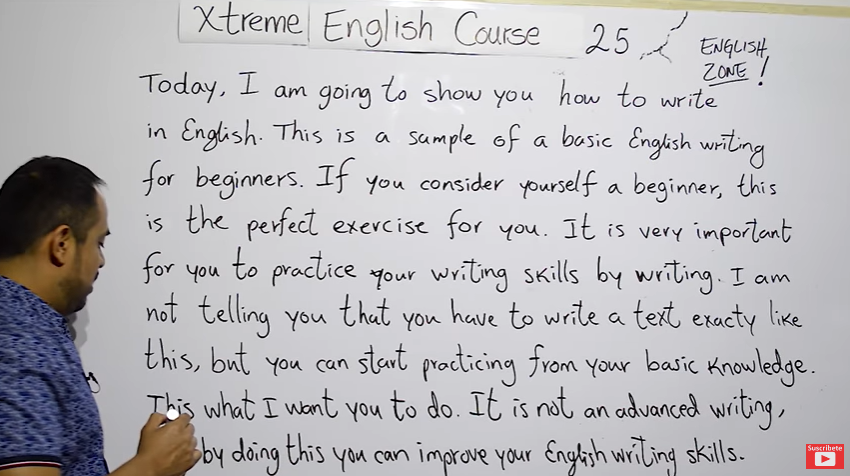 Xtreme English Course 25
ENGLISH
ZONE!
Today, I am going to show you how to write
in English. This is a sample of a basic English writing
for beginners. If you consider yourself a beginner, this
is the perfect exercise for you. It is very important
for you to practice your writing skills by writing. I am
not telling you that you have to write a text exacty like
this, but you can start practicing from your basic knowledge.
This what I want you to do. It is not an advanced writing,
by doing this you can improve your English writing skills.
Suscríbete